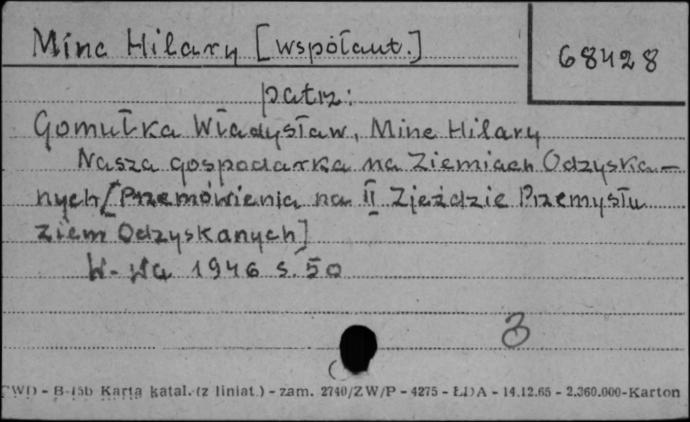 Minc Hilary [współaut.]
68428
patrz:
Gomułka Władysław, Minc Hilary
Nasza gospodarka na Ziemiach Odzyska-
nych [Przemówienia na II Zjeździe Przemysłu
Ziem Odzyskanych]
W-wa 1946 s. 50
3
PWD - B-15b Karta katal. (z liniat.) - zam. 2740/ZW/P - 4275 - ŁDA - 14.12.65 - 2.360.000-Karton